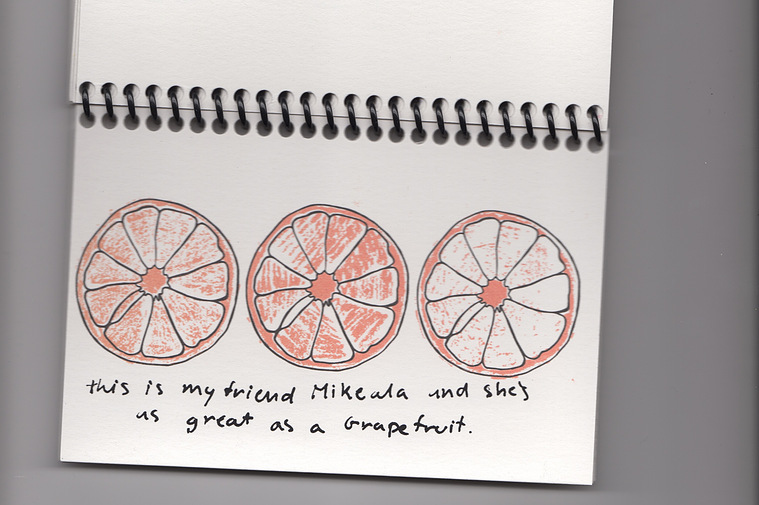 this is my friend Mikeala und she's
as great as a Grapefruit.